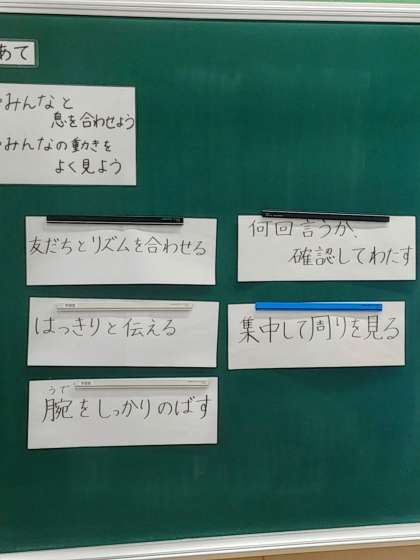 あて
みんなと
息を合わせよう
みんなの動きを
よく見よう
友だちとリズムを合わせる
何回言うか、
確認してわたす
はっきりと伝える
集中して周りを見る
うで
腕をしっかりのばす